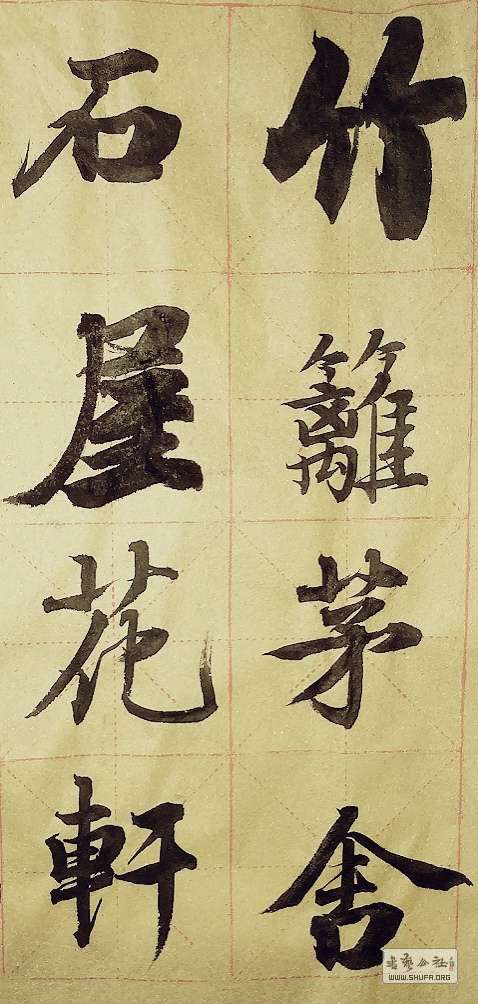 竹籬茅舍
石屋花軒
書藝公社
WWW.SHUFA.ORG